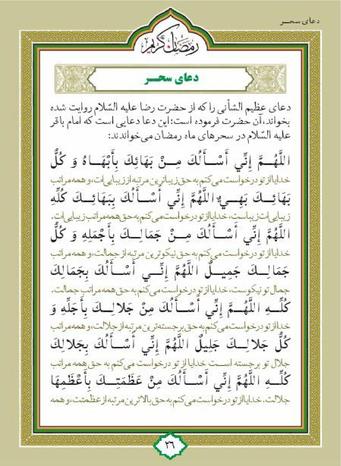 دعای سحـر
رمضان کریم
دعای سحـــر
دعای عظیم الشأنی را که از حضرت رضا علیه السّلام روایت شده
بخواند، آن حضرت فرموده است: این دعا دعایی است که امام باقر
علیه السّلام در سحرهای ماه رمضان می‌خواندند:
اَللَّهُمَّ إِنِّي أَسْأَلُكَ مِنْ بَهَائِكَ بِأَبْهَاهُ وَ كُلُّ
خدایا از تو درخواست می‌کنم به حق زیباترین مرتبه از زیبایی‌ات، و همه مراتب
بَهَائِكَ بَهِيٌّ اَللَّهُمَّ إِنِّي أَسْأَلُكَ بِبَهَائِكَ كُلِّهِ
زیبایی‌ات زیباست، خدایا از تو درخواست می‌کنم به حق همه مراتب زیبایی‌ات،
اَللَّهُمَّ إِنِّي أَسْأَلُكَ مِنْ جَمَالِكَ بِأَجْمَلِهِ وَ كُلُّ
خدایا از تو درخواست می‌کنم به حق نیکوترین مرتبه از جمالت، و همه مراتب
جَمَالِكَ جَمِيلٌ اَللَّهُمَّ إِنِّي أَسْأَلُكَ بِجَمَالِكَ
جمال تو نیکوست، خدایا از تو درخواست می‌کنم به حق همه مراتب جمالت،
كُلِّهِ اَللَّهُمَّ إِنِّي أَسْأَلُكَ مِنْ جَلالِكَ بِأَجَلِّهِ وَ
خدایا از تو درخواست می‌کنم به حق برجسته‌ترین مرتبه از جلالت، و همه مراتب
كُلُّ جَلالِكَ جَلِيلٌ اَللَّهُمَّ إِنِّي أَسْأَلُكَ بِجَلالِكَ
جلال تو برجسته است خدایا از تو درخواست می‌کنم به حق همه مراتب
كُلِّهِ اَللَّهُمَّ إِنِّي أَسْأَلُكَ مِنْ عَظَمَتِكَ بِأَعْظَمِهَا
جلالت، خدایا از تو درخواست می‌کنم به حق بالاترین مرتبه از عظمتت، و همه
۳۶